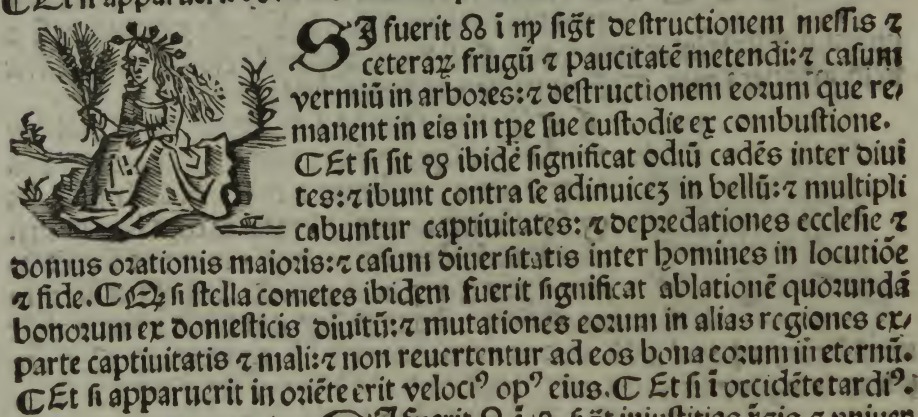 SI fuerit ☊ ĩ ♍ sigt̃ destructionem messis ⁊
ceteraꝝ frugũ ⁊ paucitatẽ metendi:⁊ casum
vermiũ in arbores:⁊ destructionem eorum que re⸗
manent in eis in tpe sue custodie ex combustione.
⸿Et si sit ☋ ibidẽ significat odiũ cadẽs inter diui
tes:⁊ ibunt contra se adinuiceꝫ in bellũ:⁊ multipli
cabuntur captiuitates: ⁊ depredationes ecclesie ⁊
domus orationis maioris:⁊ casum diuersitatis inter homines in locutiõe
⁊ fide.⸿Qꝫ si stella cometes ibidem fuerit significat ablationẽ quorundã
bonorum ex domesticis diuitũ:⁊ mutationes eorum in alias regiones ex⸗
parte captiuitatis ⁊ mali:⁊ non reuertentur ad eos bona eorum in eternũ.
⸿Et si apparuerit in oriẽte erit velociꝰ opꝰ eius.⸿ Et si ĩ occidẽte tardiꝰ.